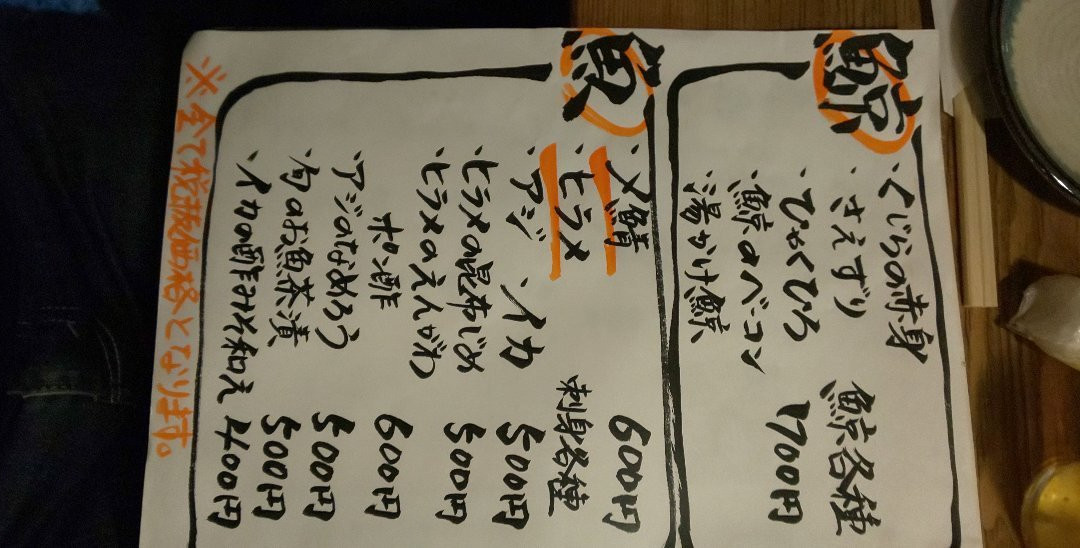 鯨
・くじらの赤身
・さえずり
・ひゃくひろ
・鯨のベーコン
・湯かけ鯨
鯨各種
1700円
魚
・〆鯖 600円
・ヒラメ
・アジ ・イカ
刺身各種 500円
・ヒラメの昆布じめ 500円
・ヒラメのえんがわ
ポン酢 600円
・アジのなめろう 500円
・旬のお魚茶漬 500円
・イカの酢みそ和え 400円
※全て税抜価格となります。